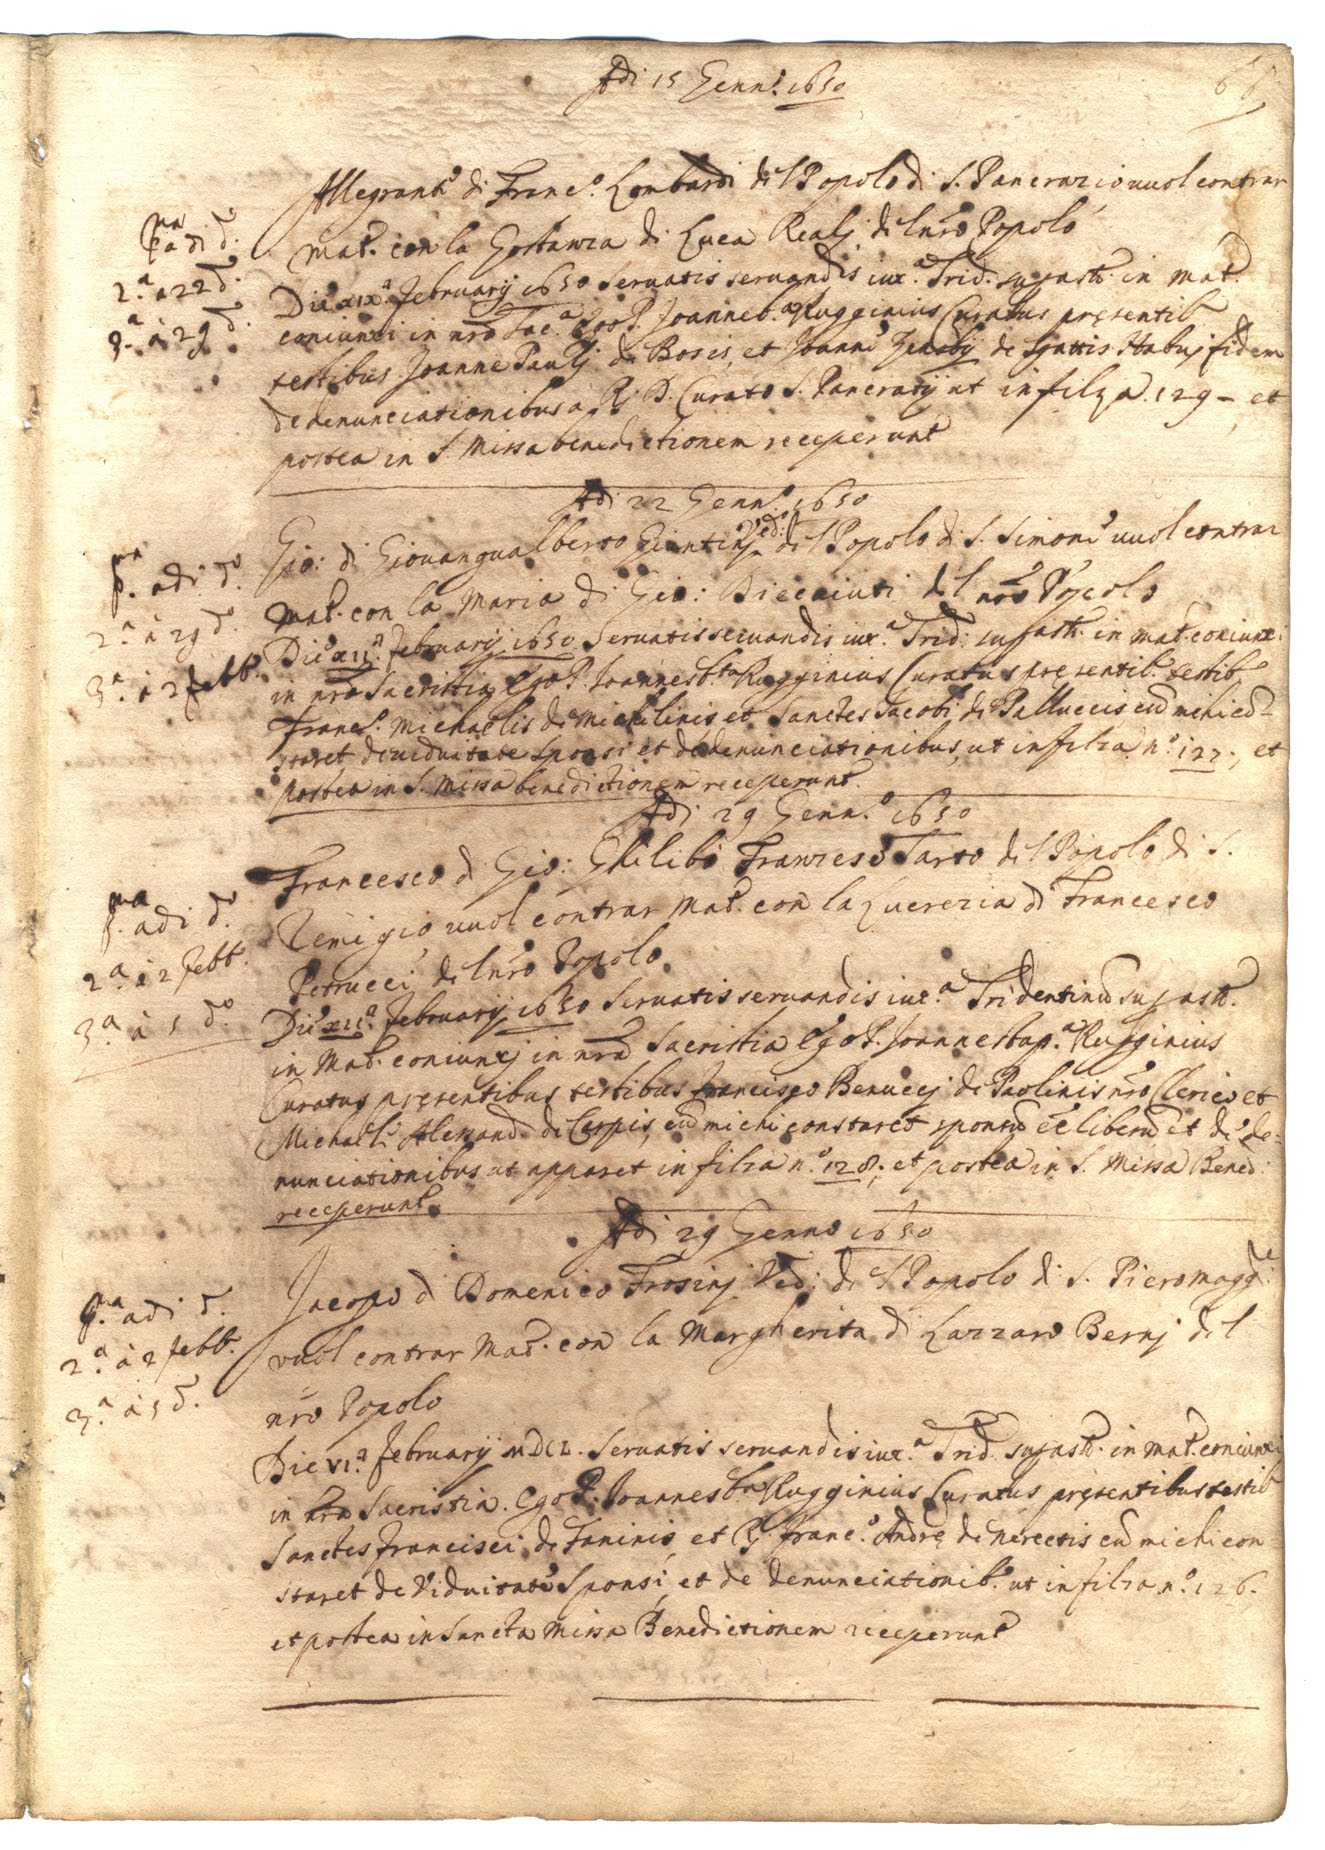 Adi 15 Genn.o 1650
68
Allegrante di Franc.o Lombardi del Popolo di S. Pancrazio vuol contrar
p.ma adi d.o
mat. con la Gostanza di Luca Realj del nro Popolo
2.a a 22 d.o
Die xix.a februarij 1650 Servatis servandis iux.a Trid. in mat.
3.a à 29 d.o
coniunxi in nra Sac.a Ego P. Joannes b.a Rugginius Curatus presentib.
testibus Joanne Paulj de Bosis, et Joanne Zenobij de Habuj fidem
de denunciationibus a R. D. Curato S. Pancratij ut in filza 129 - et
postea in S. Missa benedictionem receperunt
Adi 22 Genn.o 1650
Gio: di Giovangualberto Giuntinj Ved: del Popolo di S. Simone vuol contrar
p.ma adi d.o
mat. con la Maria di Gio: Biecaiuti del nro Popolo
2.a à 29 d.o
Die xii.a februarij 1650 Servatis servandis iux.a Trid: in mat. coniunxi
3.a à 2 febb.
in nra Sacristia Ego P. Joannes b.ta Rugginius Curatus presentib. testib.
Franc.o Michaelis de Michilinis et Sanctes Jacobi de Palluccis cu mihi con-
staret de viduitate sponsi et de denunciationibus, ut in filza n.o 127, et
postea in S. Missa benedictionem receperunt.
Adi 29 Genn.o 1650
Francesco di Gio: Ghilibi Franzese Sarto del Popolo di S.
p.ma adi d.o
Remigio vuol contrar Mat. con la Lucrezia di Francesco
2.a à 2 febb.
Petrucci del nro Popolo
3.a à 5 d.o
Die xii.a februarij 1650 Servatis servandis iux.a Tridentinu
in Mat. coniunxj in nra Sacristia Ego P. Joannes bap.a Rugginius
Curatus presentibus testibus Francisco Benuccj de Paolinis nro Clerico et
Michaele Alessand. de Carpis, cu michi constaret sponsu ee liberu et de de=
nunciationibus ut apparet in filza n.o 128, et postea in S. Missa Bened:
receperunt.
Adi 29 Genno 1650
Jacopo di Domenico Frosinj Ved: del Popolo di S. Piero magg.re
p.ma adi d.
vuol contrar Mat. con la Margherita di Lazzaro Bernj del
2.a à 2 febb.
nro Popolo
3.a à 5 d.
Die vi.a februarij MDCL. Servatis servandis iux.a Trid. in mat. coniunxi
in nra Sacristia. Ego P. Joannes b.a Rugginius Curatus presentibus testib.
Sanctes Francisci de Faninis et R. Franc.o Andre de Nerettis cu michi con=
staret de Viduitate Sponsi, et de denunciationib. ut in filza n.o 126.
et postea in Sancta Missa Benedictionem receperunt